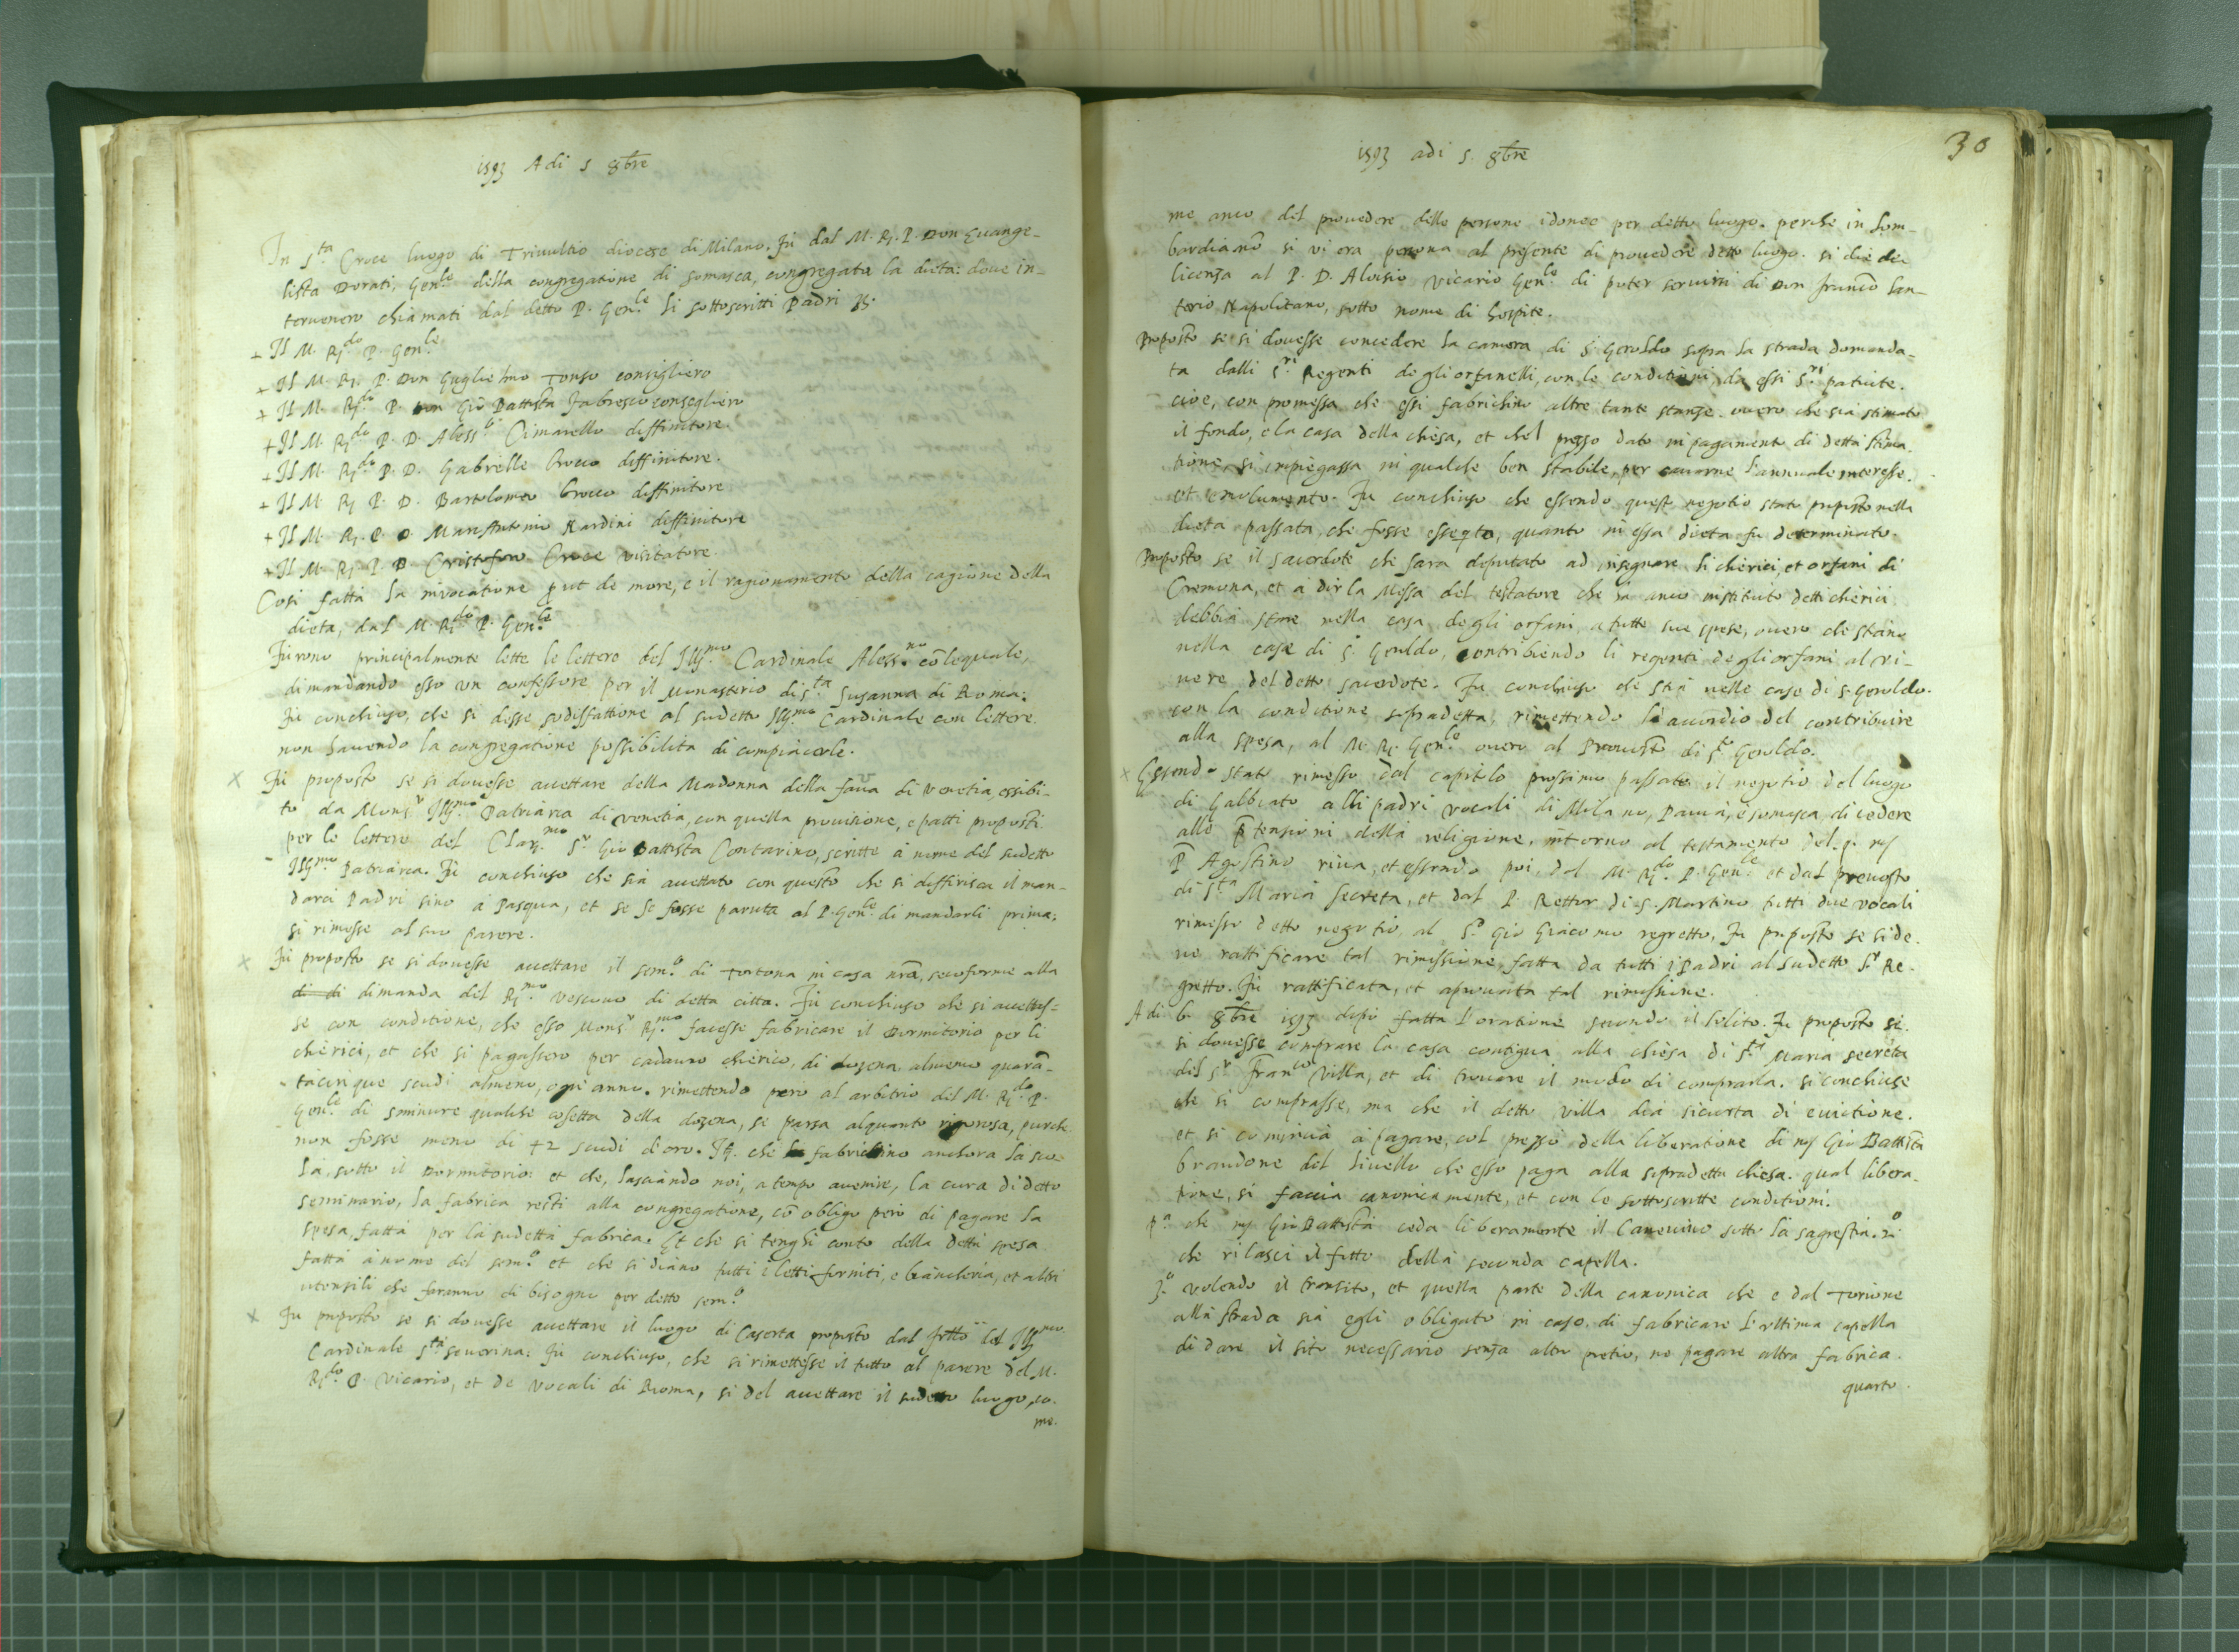 1593 Adi 5 8bre
In Sta Croce luogo di Trivultio diocese di Milano. Fu dal M. R. P. Don Evange-
lista Dorati, Gen.le della congregatione di somasca, congregata la dieta: dove in-
tervenero chiamati dal detto P. Gen.le li sottoscritti Padri
+ Il M. R.do P. Gen.le
+ Il M. R. P. Don Guglielmo Tonso consigliero
+ Il M. R.do P. Don Gio Battista Fabresco consegliero
+ Il M. R.do P. D. Aless.o Cimarello diffinitore.
+ Il M. R.do P. D. Gabrielle Brocco diffinitore.
+ Il M. R. P. D. Bartolomeo Brocco diffinitore
+ Il M. R. P. D. Marc'Antonio Nardini diffinitore
+ Il M. R. P. D. Cristoforo Croce visitatore.
Cosi fatta la invocatione put de more, e il ragionamento della cagione della
dieta, dal M. R.do P. Gen.le
Furono principalmente lette le lettere del Ill.mo Cardinale Aless.no colequale,
dimandando esso un confessore per il Monasterio di S.ta Susanna di Roma:
Fu conchiuso, che si desse sodisfattione al sudetto Ill.mo Cardinale con lettere
non havendo la congregatione possibilita di compiacerle.
x Fu proposto se si dovesse accettare della Madonna della fava di Venetia, essibi-
to da Mons.r Ill.mo Patriarca di Venetia, con quella provisione, e patti proposti
per le lettere del Clar.mo S.r Gio Battista Contarino, scritte à nome del sudetto
Ill.mo Patriarca. Fu conchiuso che sia accettato con questo che si differisca il man-
darci Padri sino a Pasqua, et se fosse paruta al P. Gen.le di mandarli prima;
si rimesse al suo parere.
x Fu proposto se si dovesse accettare il sem.o di Tortona in casa nrã, secoforme alla
di di dimanda del R.mo vescovo di detta citta. Fu conchiuso che si accettes-
se con conditione, che esso Mons.r R.mo facesse fabricare il Dormitorio per li
chierici, et che si pagassero per cadauno chierico, di dozena almeno quarã-
tacinque scudi almeno, ogni anno. rimettendo pero al arbitrio del M. R.do P.
Gen.le di sminuire qualche cosetta della dozena, se parsa alquanto rigorosa, purche
non fosse meno di 42 scudi d'oro. It. che fabrichino anchora la scu-
la, sotto il Dormitorio: et che, lasciando noi, a tempo avenire, la cura di detto
seminario, la fabrica resti alla congregatione, cõ obligo però di pagare la
spesa fatta per la sudetta fabrica. Et che si tenghi conto della detta spesa
fatta à nome del sem.o et che si diano tutti i letti forniti, e biancheria, et altri
utensili che faranno di bisogno per detto sem.o
x Fu proposto se si dovesse accettare il luogo di Caserta proposto dal del Ill.mo
Cardinale S.ta Severina: Fu conchiuso, che si rimettesse il tutto al parere del M.
R.do P. Vicario, et de Vocali di Roma, si del accettare il sudetto luogo, co-
me.
1593 adi 5. 8bre
30
me anco del provedere delle persone idonee per detto luogo. perche in Lom-
bardia nõ si vi era persona al presente di provedere detto luogo. si die de
licenza al P. D. Aloisio Vicario Gen.le di poter servirsi di Don Franco San-
terio Napolitano, sotto nome di hospite.
Proposto se si dovesse concedere la camera di S. Geroldo sopra la strada domanda-
ta dalli S.ri Regenti de gli orfanelli, con le conditioni, da essi S.ri patuite.
cioe, con promessa che essi fabrichino altre tante stanze. overo che sia stimato
il fondo, e la casa della chiesa, et che'l prezzo dato in pagamento di detta stima
tione, si impiegassa in qualche ben stabile, per cavarne l'annuale interesse.
et emolumento. Fu conchiuso che essendo quest negotio stato proposto nella
dieta passata, che fosse esseqto, quanto in essa dieta fu determinato.
Proposto se il sacerdote che sara deputato ad insegnare li chierici, et orfani di
Cremona, et a dir la Messa del testatore che ha anco instituto detti chierici
debbia stare nella casa degli orfani, a tutte sue spese, overo che stiano
nella casa di S. Geroldo, contribiendo li regenti degli orfani al vi-
vere del detto sacerdote. Fu conchiuso che stia nelle case di S. Geroldo.
con la conditione sopradetta, rimettendo l'accordio del contribuire
alla spesa, al M. R. Gen.le overo al Prevosto di S.to Geroldo.
x Essendo stato rimesso dal capitolo prossimo passato il negotio del luogo
di Galbiato alli padri vocali di Milano, Pavia, e somasca, di cedere
alle p̃tensioni della religione, intorno al testamento del q. m
P. Agostino riva, et essendo poi, dal M. R.do P. Gen.le et dal prevosto
di S.ta Maria Secreta, et dal P. Rettor di S. Martino tutti due vocali
rimesso detto negotio, al S.r Gio Giacomo regretto, Fu proposto se si de-
ve rattificare tal rimissione, fatta da tutti i Padri al sudetto S.r Re-
gretto. Fu rattificata, et aprovata tal rimissione.
Adi 6 8bre 1593 dopò fatta l'oratione secondo il solito. Fu proposto se
si dovesse comprare la casa contigua alla chiesa di S.ta Maria secreta
del S.r Fran.co Villa, et di trovare il modo di comprarla. si conchiuse
che si comprasse, ma che il detto villa dia sicurta di evictione.
et si comincia à pagare, col prezzo della liberatione di m Gio Battista
Brandone del livello che esso paga alla sopradetta chiesa. qual libera-
tione, si faccia canonicamente, et con le sottoscritte conditioni.
P.a che m Gio Battista ceda liberamente il Canevino sotto la sagrestia. 2.o
che rilasci il fitto della seconda capella.
3.o volendo il transito, et quella parte della canonica che e dal Torione
alla strada sia egli obligato in caso di fabricare l'ultima capella
di dare il sito necessario senza altro pretio, ne pagare altra fabrica.
quarto.